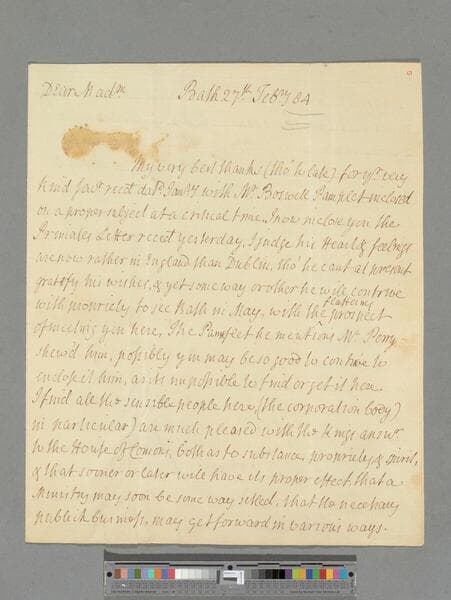 Dear Madm Bath 27th Febry 84
My very best thanks (tho' so late) for yr very
kind favr recet dat. Janry with Mr Boswell Pamplet inclosed
on a proper subject at a critical time. I now inclose you the
Primates Letter recet yesterday, I judge his Heart & feelings
are now rather in England than Dublin, tho' he cant at present
gratify his wishes, & yet some way or other he will contrive
flattering
with propriety to see Bath in May, with the prospect
of meeting you here, The Pamflet he mentions Mr Perry
shew'd him, possibly you may be so good to contrive to
enclose it him, as its impossible to find or get it here.
I find all the sensible people here, (the corporation body)
in particular) are much pleased with the Kings answr
to the House of Comons, both as to substance, propriety & spirit,
& that sooner or later will have its proper effect, that a
Ministry may soon be some way setled, that the necessary
publick business, may get forward in various ways.